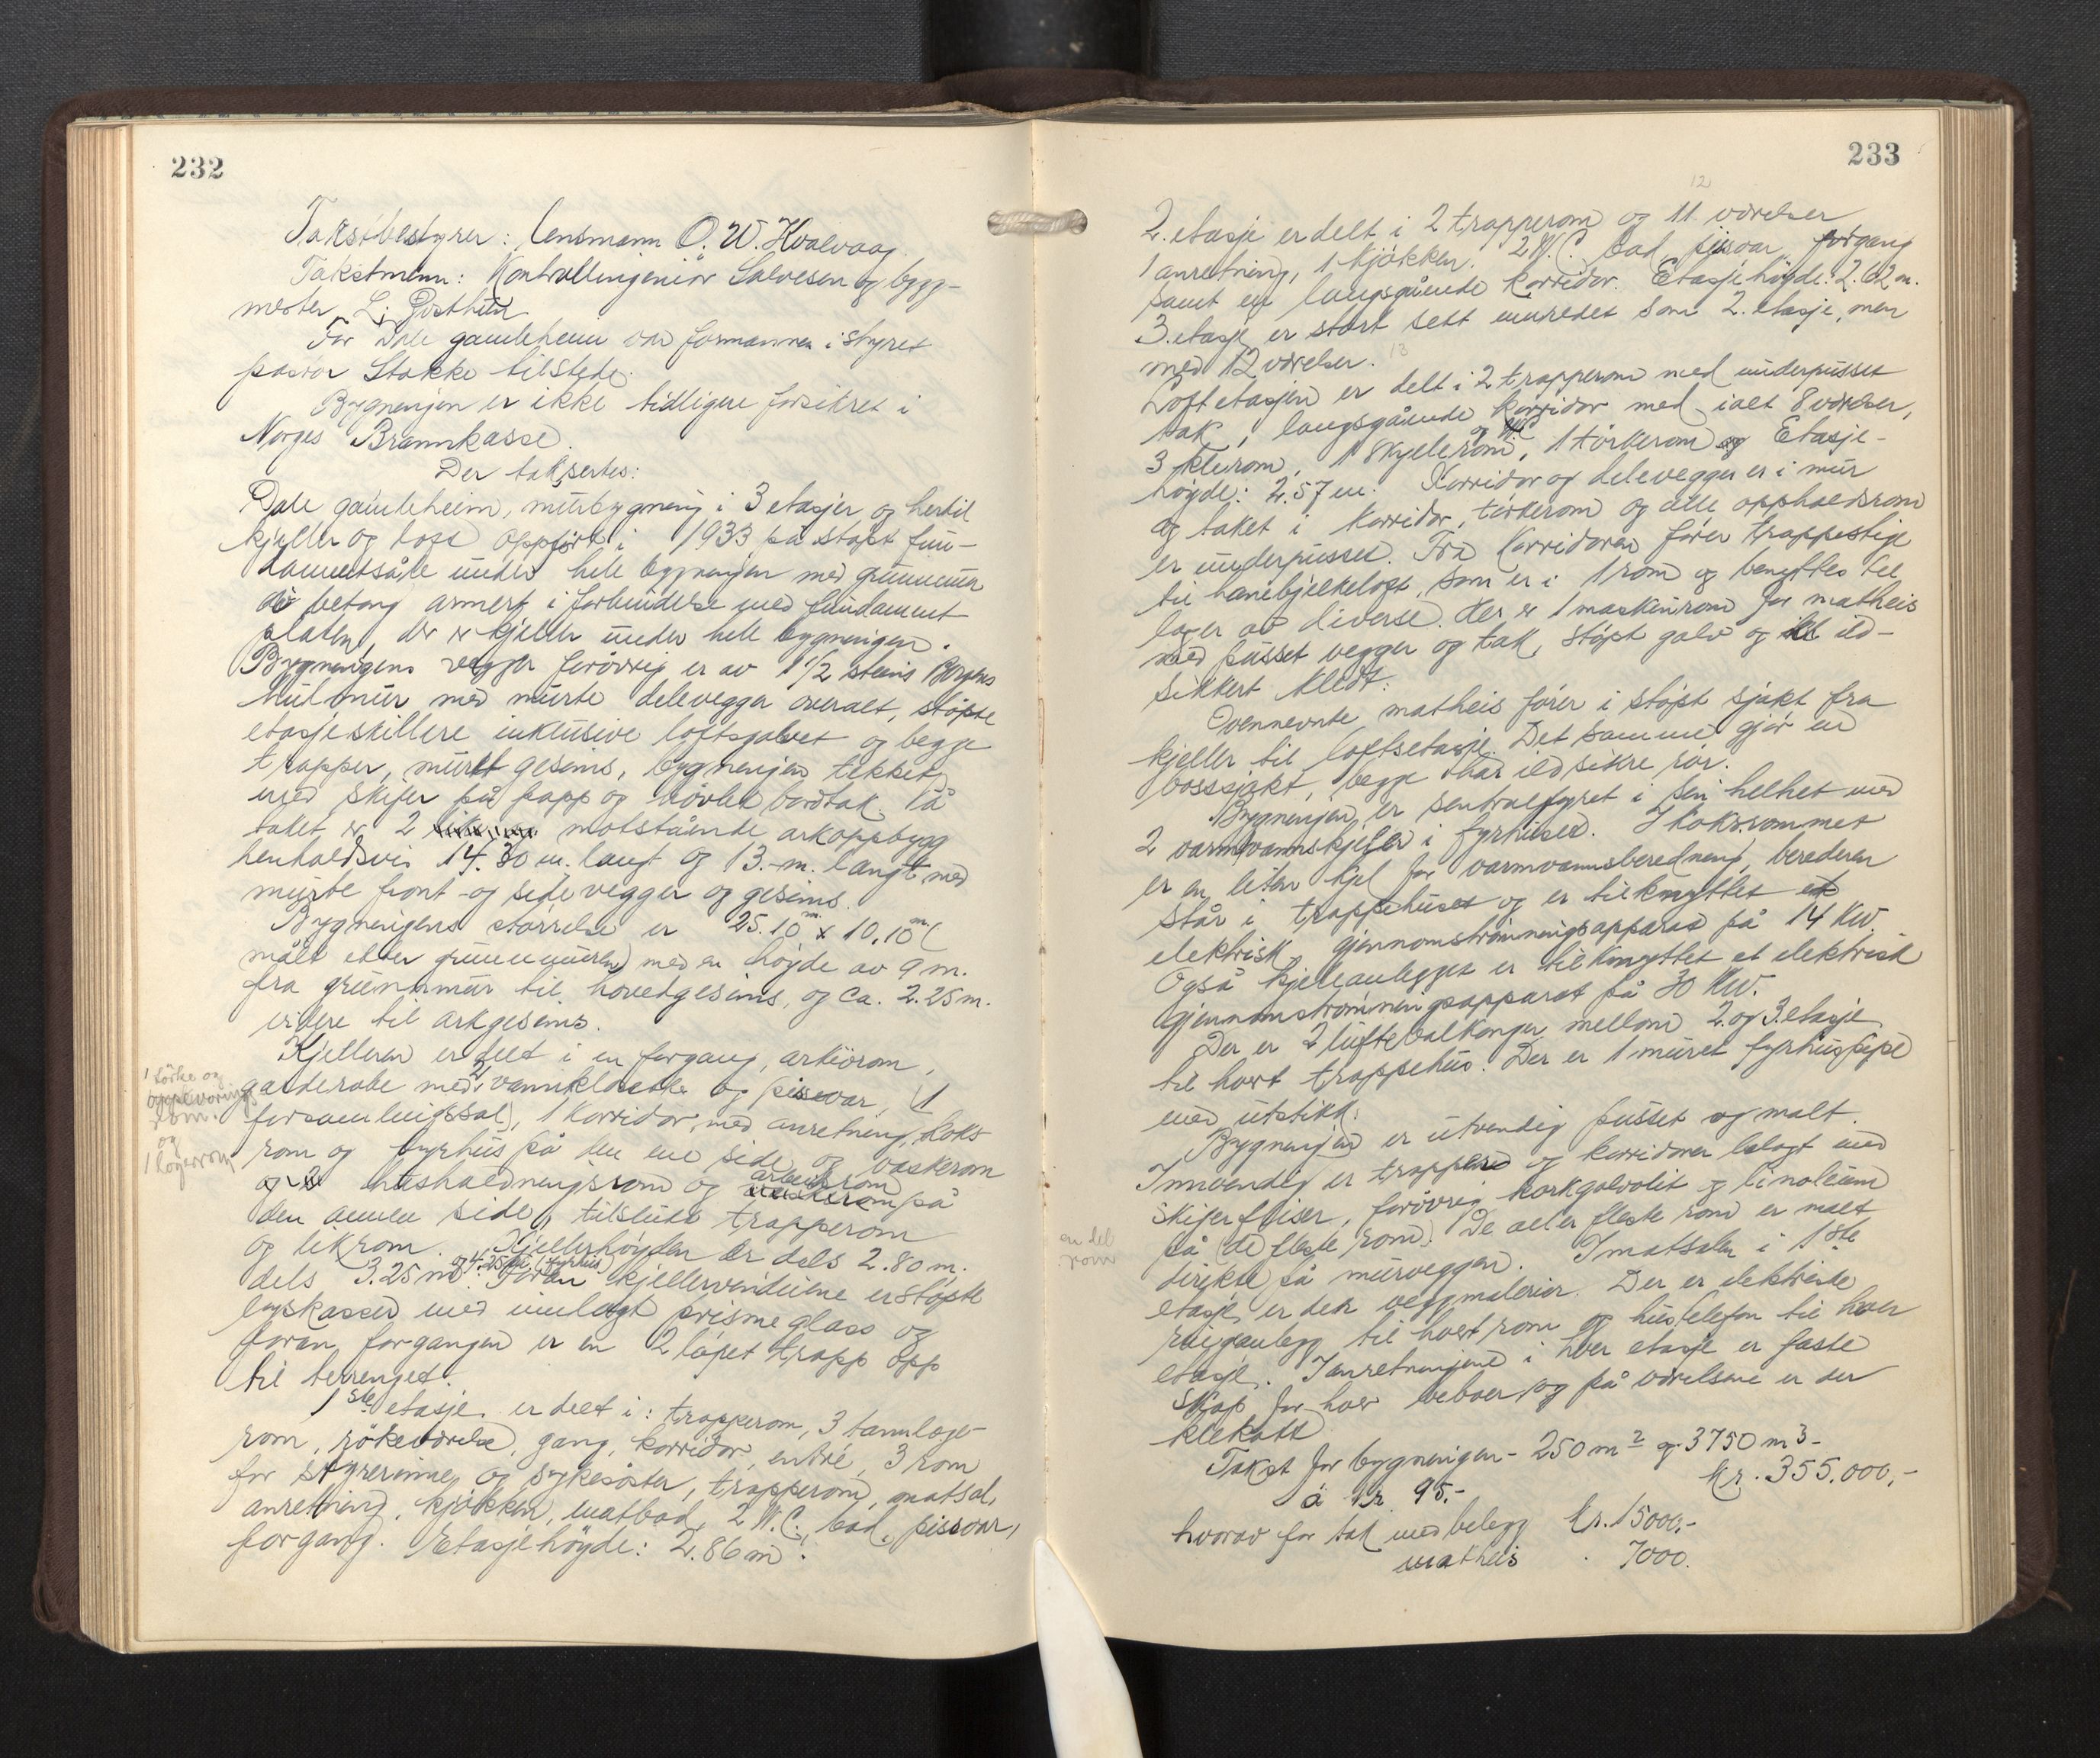 232
Takstbestyrer: lensmann O. W. Kvalvaag.
Takstmenn: Kontrollingeniör Salvesen og bygg-
mester L.
For Dale gamleheim var formannen i styret
pastor Stakke tilstede.
Bygningen er ikke tidligere forsikret i
Norges Brannkasse.
Der taksertes:
Dale gamleheim, murbygning i 3 etasjer og hertil
kjeller og loft oppfört i 1933 på stöpt fun-
damentsåle under hele bygningen med grunnmur
av betong armert i forbindelse med fundament
platen, der er kjeller under hele bygningen.
Bygningens vegger forövrig er av 1 1/2 steins Bergens
hulmur med murte delevegger overalt, stöpte
etasjeskillere inklusive loftsgolvet og begge
trapper, muret gesims, bygningen tekket
med skifer på papp og hövlet bordtak. På
taket er 2 motstående arkoppbygg
henholdsvis 14.30 m. langt og 13.- m. langt med
murte front- og sidevegger og gesims.
Bygningens störrelse er 25.10 m x 10.10 m (
målt etter grunnmuren) med en höyde av 9 m.
fra grunnmur til hovedgesims, og ca. 2.25 m.
videre til arkgesims.
Kjelleren er delt i en forgang, arkivrom,
1 törke og
opplevarings
rom.
og
1 lagerrom
garderobe med 2 vannklosetter og pissoar, 1
forsamlingssal, 1 korridor, med anretning, koks
rom og fyrhus på den ene side og vaskerom
og husholdningsrom og arbeidsrom på
den annen side, tilslutt trapperom
og likrom. Kjellerhöyden er dels 2.80 m.
dels 3.25 m og 4.25 m (fyrhus). Foran kjellervinduene er stöpte
lyskasser med innlagt prismeglass og
foran forgangen er en 2 löpet trapp opp
til terrenget.
1ste etasje er delt i: trapperom, 3
rom, rökeværelse, gang, korridor, entré, 3 rom
for styrerinne og sykesöster, trapperom, matsal,
anretning, kjökken, matbod, 2 W.C., bad, pissoar,
forgang. Etasjehöyde: 2.86 m.
233
12
2. etasje er delt i 2 trapperom og 11 værelser
1 anretning, 1 kjökken. 2 W.C. bad, pissoar, forgang
samt en langsgående korridor. Etasjehöyde: 2.62 m.
3. etasje er stort sett innredet som 2. etasje, men
med 12 værelser. 13
Loftetasjen er delt i 2 trapperom med underpusset
tak, langsgående korridor med ialt 8 værelser,
3 klerom, 1 skyllerom og WC, 1 törkerom Etasje-
höyde: 2.57 m. Korridor og delevegger er i mur
og taket i korridor, törkerom og alle oppholdsrom
er underpusset. Fra korridoren förer trappestige
til hanebjelkeloft, som er i 1 rom og benyttes til
lager av diverse. Her er 1 maskinrom for matheis
med pusset vegger og tak, stöpt golv og ild-
sikkert kledt.
Ovennevnte matheis förer i stöpt sjakt fra
kjeller til loftsetasje. Det samme gjör en
bossjakt, begge har ildsikre rör.
Bygningen er sentralfyret i sin helhet med
2 varmtvannskjeler i fyrhuset. I koksrommet
er en liten kjel for varmvannsberedning, berederen
står i trappehuset og er tilknyttet et
elektrisk gjennomströmningsapparat på 14 Kw.
Også kjelleanlegget er tilknyttet et elektrisk
gjennomströmningsapparat på 30 Kw.
Der er 2 luftevalkonger mellom 2. og 3. etasje
til hvert trappehus. Der er 1 muret fyrhuspipe
med utstikk.
Bygningen er utvendig pusset og malt.
Innvendig er trappene og korridorer belagt med
skiferfliser, forövrig korkgolvolit og linoleum
en del
rom
på (de fleste rom). De aller fleste rom er malt
direkte på murveggen. I matsalen i 1ste
etasje er der veggmalerier. Der er elektriske
ringanlegg til hvert rom og hustelefon til hver
etasje. I anretningene i hver etasje er faste
skap for hver beboer, og på værelsene er der
klekott
Takst for bygningen - 250 m2 og 3750 m3 -
à kr. 95.- kr. 355.000,-
hvorav for tak med belegg kr. 15000.-
matheis . 7000.